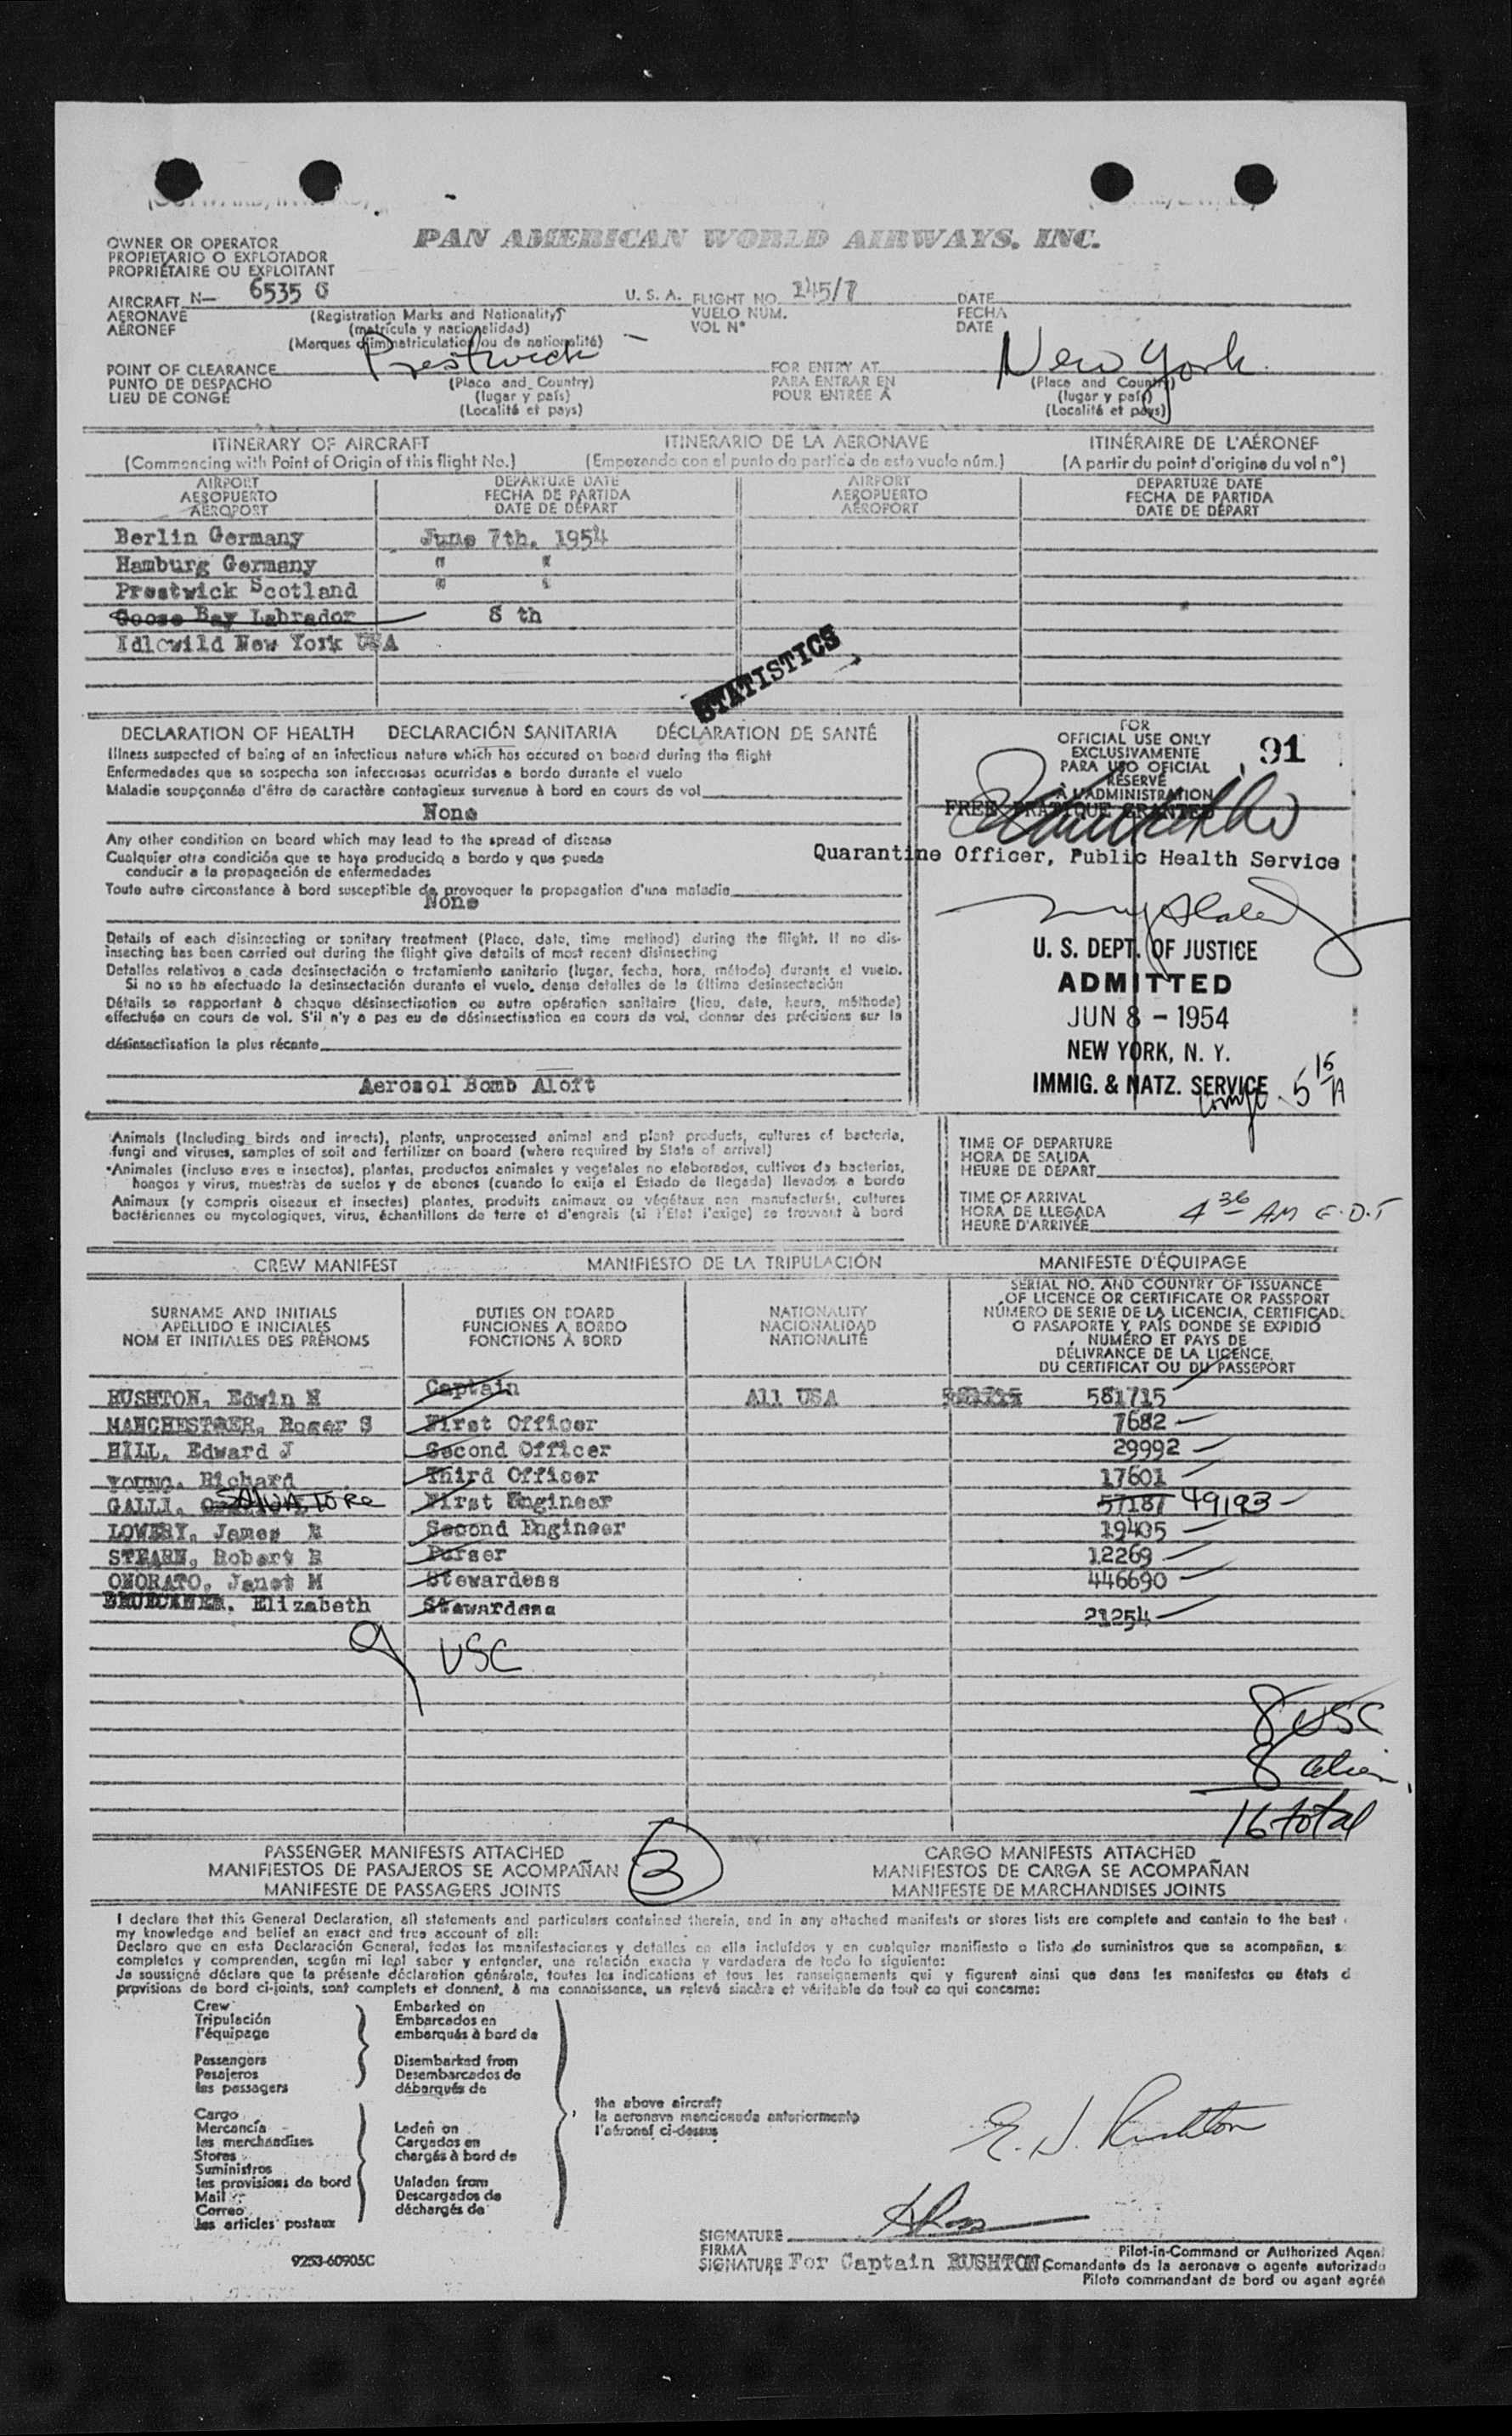 PAN AMERICAN WORLD AIRWAYS, INC.
OWNER OR OPERATOR
PROPIETARIO O EXPLOTADOR
PROPRIÉTAIRE OU EXPLOITANT
AIRCRAFT N— 6535 U. S. A. FLIGHT NO. 145/7 DATE
AERONAVE (Registration Marks and Nationality) VUELO NÚM. FECHA
AÉRONEF (matrícula y nacionalidad) VOL N° DATE
(Marques d'immatriculation ou de nationalité)
POINT OF CLEARANCE Prestwick FOR ENTRY AT New York
PUNTO DE DESPACHO (Place and Country) PARA ENTRAR EN (Place and Country)
LIEU DE CONGÉ (lugar y país) POUR ENTRÉE À (lugar y país)
(Localité et pays) (Localité et pays)
ITINERARY OF AIRCRAFT ITINERARIO DE LA AERONAVE ITINÉRAIRE DE L'AÉRONEF
(Commencing with Point of Origin of this flight No.) (Empezando con el punto de partida de este vuelo núm.) (A partir du point d'origine du vol n°)
AIRPORT DEPARTURE DATE AIRPORT DEPARTURE DATE
AEROPUERTO FECHA DE PARTIDA AEROPUERTO FECHA DE PARTIDA
AÉROPORT DATE DE DÉPART AÉROPORT DATE DE DÉPART
Berlin Germany June 7th. 1954
Hamburg Germany " "
Prestwick Scotland " "
Goose Bay Labrador 8 th
Idlewild New York USA
STATISTICS
DECLARATION OF HEALTH DECLARACIÓN SANITARIA DÉCLARATION DE SANTÉ
Illness suspected of being of an infectious nature which has occured on board during the flight
Enfermedades que se sospecha son infecciosas ocurridas a bordo durante el vuelo
Maladie soupçonnée d'être de caractère contagieux survenue à bord en cours de vol
None
Any other condition on board which may lead to the spread of disease
Cualquier otra condición que se haya producido a bordo y que pueda
conducir a la propagación de enfermedades
Toute autre circonstance à bord susceptible de provoquer la propagation d'une maladie
None
Details of each disinsecting or sanitary treatment (Place, date, time method) during the flight. If no dis-
insecting has been carried out during the flight give details of most recent disinsecting
Detalles relativos a cada desinsectación o tratamiento sanitario (lugar, fecha, hora, método) durante el vuelo.
Si no se ha efectuado la desinsectación durante el vuelo, dense detalles de la última desinsectación
Détails se rapportant à chaque désinsectisation ou autre opération sanitaire (lieu, date, heure, méthode)
effectuée en cours de vol. S'il n'y a pas eu de désinsectisation en cours de vol, donner des précisions sur la
désinsectisation la plus récente
Aerosol Bomb Aloft
FOR
OFFICIAL USE ONLY
EXCLUSIVAMENTE
PARA USO OFICIAL
RÉSERVÉ
À L'ADMINISTRATION
91
FREE PRATIQUE GRANTED
Quarantine Officer, Public Health Service
U. S. DEPT. OF JUSTICE
ADMITTED
JUN 8 - 1954
NEW YORK, N. Y.
IMMIG. & NATZ. SERVICE
5 15 A
Animals (Including birds and insects), plants, unprocessed animal and plant products, cultures of bacteria,
fungi and viruses, samples of soil and fertilizer on board (where required by State of arrival)
Animales (incluso aves e insectos), plantas, productos animales y vegetales no elaborados, cultivos de bacterias,
hongos y virus, muestras de suelos y de abonos (cuando lo exija el Estado de llegada) llevados a bordo
Animaux (y compris oiseaux et insectes) plantes, produits animaux ou végétaux non manufacturés, cultures
bactériennes ou mycologiques, virus, échantillons de terre et d'engrais (si l'État l'exige) se trouvant à bord
TIME OF DEPARTURE
HORA DE SALIDA
HEURE DE DÉPART
TIME OF ARRIVAL
HORA DE LLEGADA
HEURE D'ARRIVÉE
4 36 AM E.D.T
CREW MANIFEST MANIFIESTO DE LA TRIPULACIÓN MANIFESTE D'ÉQUIPAGE
SURNAME AND INITIALS
APELLIDO E INICIALES
NOM ET INITIALES DES PRÉNOMS
DUTIES ON BOARD
FUNCIONES A BORDO
FONCTIONS À BORD
NATIONALITY
NACIONALIDAD
NATIONALITÉ
SERIAL NO. AND COUNTRY OF ISSUANCE
OF LICENCE OR CERTIFICATE OR PASSPORT
NÚMERO DE SERIE DE LA LICENCIA, CERTIFICAD
O PASAPORTE Y PAÍS DONDE SE EXPIDIÓ
NUMÉRO ET PAYS DE
DÉLIVRANCE DE LA LICENCE,
DU CERTIFICAT OU DU PASSEPORT
RUSHTON, Edwin N Captain All USA 581715 581715
MANCHESTGER, Roger S First Officer 7682
HILL, Edward J Second Officer 29992
YOUNG, Richard Third Officer 17601
GALLI, SALVATORE First Engineer 57187 49193
LOWERY, James R Second Engineer 19405
STEARN, Robert R Purser 12269
ONORATO, Janet M Stewardess 446690
BRUECKNER, Elizabeth Stewardess 21254
9 USC
8 USC
8 alien
16 total
PASSENGER MANIFESTS ATTACHED CARGO MANIFESTS ATTACHED
MANIFIESTOS DE PASAJEROS SE ACOMPAÑAN 3 MANIFIESTOS DE CARGA SE ACOMPAÑAN
MANIFESTE DE PASSAGERS JOINTS MANIFESTE DE MARCHANDISES JOINTS
I declare that this General Declaration, all statements and particulars contained therein, and in any attached manifests or stores lists are complete and contain to the best
my knowledge and belief an exact and true account of all:
Declaro que en esta Declaración General, todas las manifestaciones y detalles en ella incluídos y en cualquier manifiesto o lista de suministros que se acompañan, s
completos y comprenden, según mi leal saber y entender, una relación exacta y verdadera de todo lo siguiente:
Je soussigné déclare que la présente déclaration générale, toutes les indications et tous les renseignements qui y figurent ainsi que dans les manifestes ou états d
provisions de bord ci-joints, sont complets et donnent, à ma connaissance, un relevé sincère et véritable de tout ce qui concerne:
Crew Embarked on
Tripulación Embarcados en
l'équipage embarqués à bord de
Passengers Disembarked from
Pasajeros Desembarcados de
les passagers débarqués de
Cargo
Mercancía Laden on
les merchandises Cargados en
Stores chargés à bord de
Suministros
les provisions de bord Unladen from
Mail Descargados de
Correo déchargés de
les articles postaux
the above aircraft
la aeronave mencionada anteriormente
l'aéronef ci-dessus
E. N. Rushton
SIGNATURE
FIRMA
SIGNATURE For Captain RUSHTON
Pilot-in-Command or Authorized Agent
Comandante de la aeronave o agente autorizado
Pilote commandant de bord ou agent agréé
9253-60905C